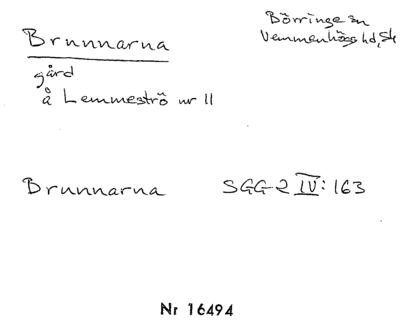 Brunnarna
Börringe sn
Vemmenhögs hd, Sk
gård
å Lemmeströ nr 11
Brunnarna SGG-2 IV: 163
Nr 16494